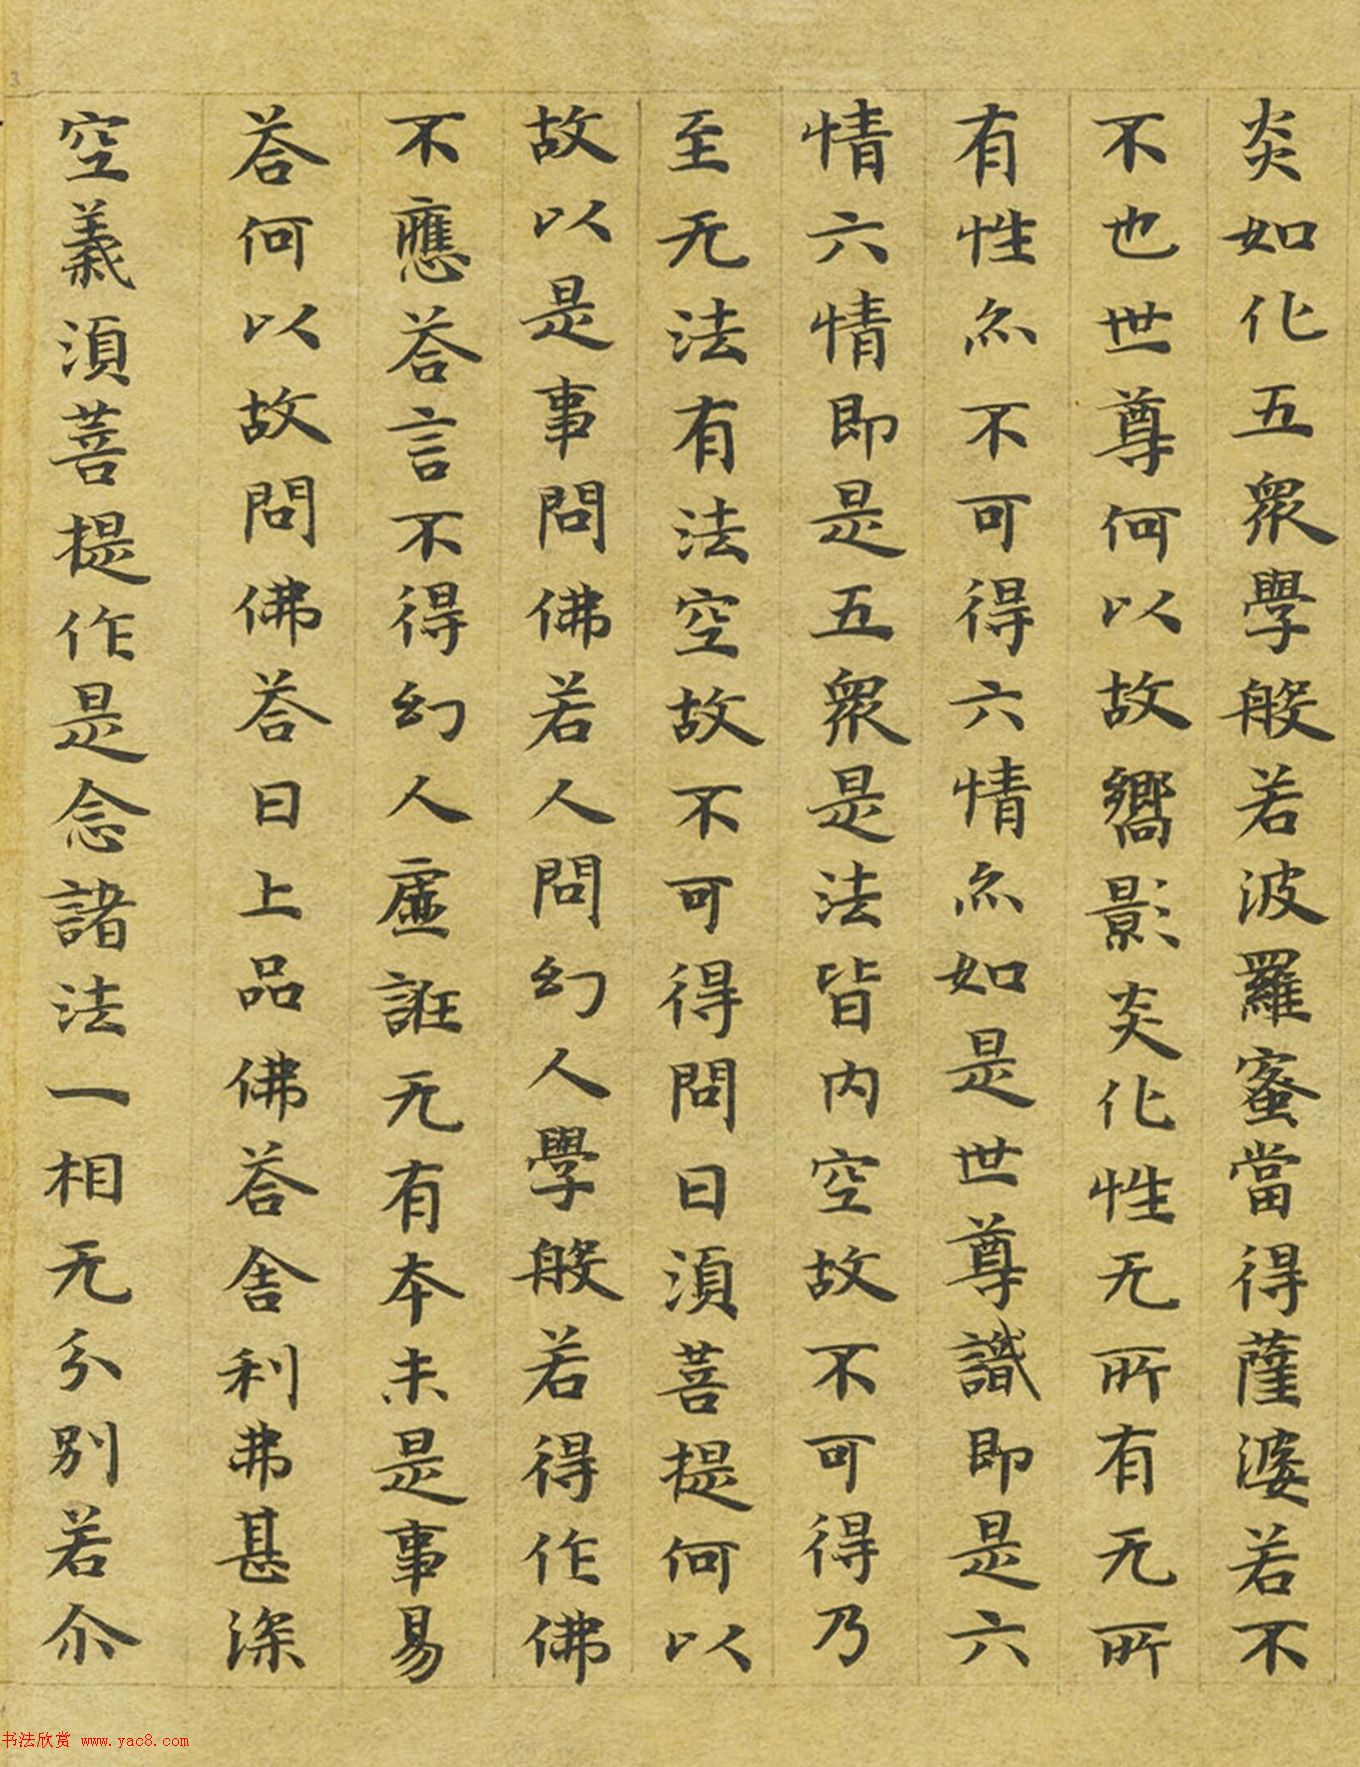 炎如化五衆學般若波羅蜜當得薩婆若不
不也世尊何以故嚮影炎化性无所有无所
有性尒不可得六情尒如是世尊識即是六
情六情即是五衆是法皆内空故不可得乃
至无法有法空故不可得問曰湏菩提何以
故以是事問佛若人問幻人學般若得作佛
不應荅言不得幻人虛誑无有本末是事易
荅何以故問佛荅曰上品佛荅舍利弗甚深
空義湏菩提作是念諸法一相无分別若尒
3
书法欣赏 www.yac8.com